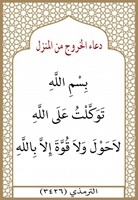 دعاء الخروج من المنزل
بِسْمِ اللَّهِ
تَوَكَّلْتُ عَلَى اللَّهِ
لَاحَوْلَ وَلَا قُوَّةَ إِلَّا بِاللَّهِ
الترمذي (٣٤٢٦)